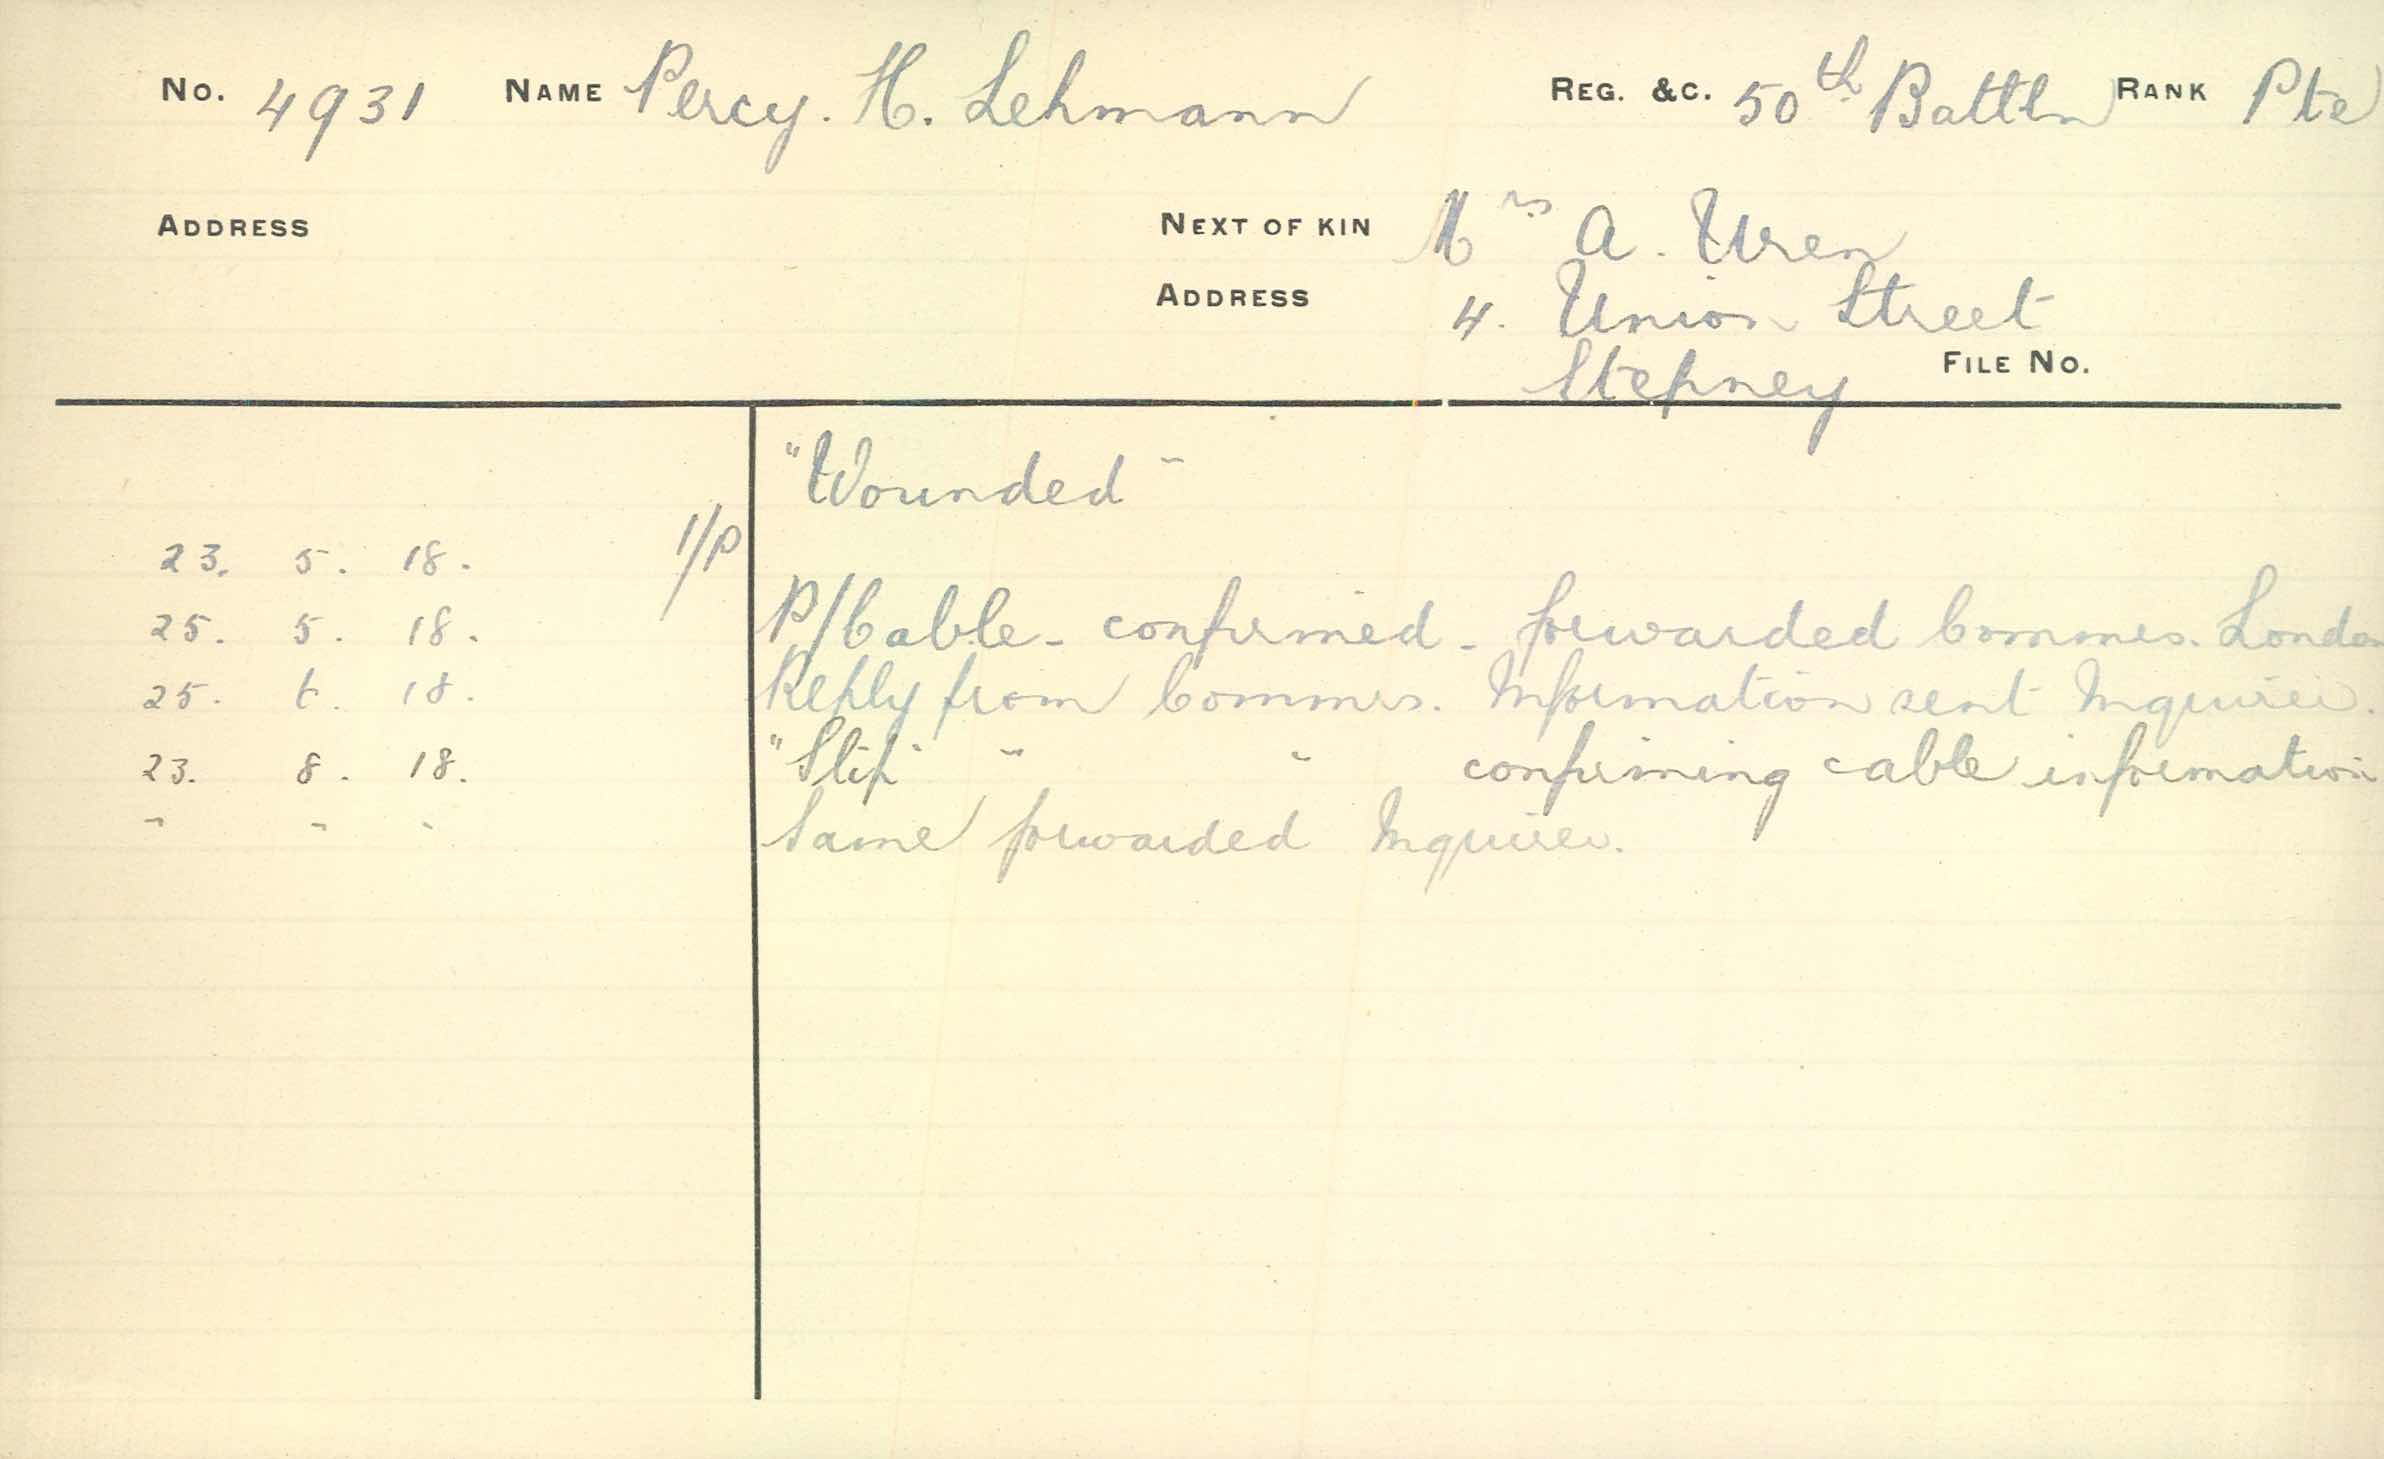 No. 4931 NAME Percy. H. Lehmann REG. &C. 50th Battln RANK Pte
ADDRESS NEXT OF KIN Mrs A. Uren
ADDRESS 4. Union Street
Stepney FILE No.
"Wounded"
23. 5. 18. 1/P
25. 5. 18. P/Cable - confirmed - forwarded Commrs. London
25. 6. 18. Reply from Commrs. Information sent Inquirer.
23. 8. 18. "Slip" " " confirming cable information
" " " Same forwarded Inquirer.